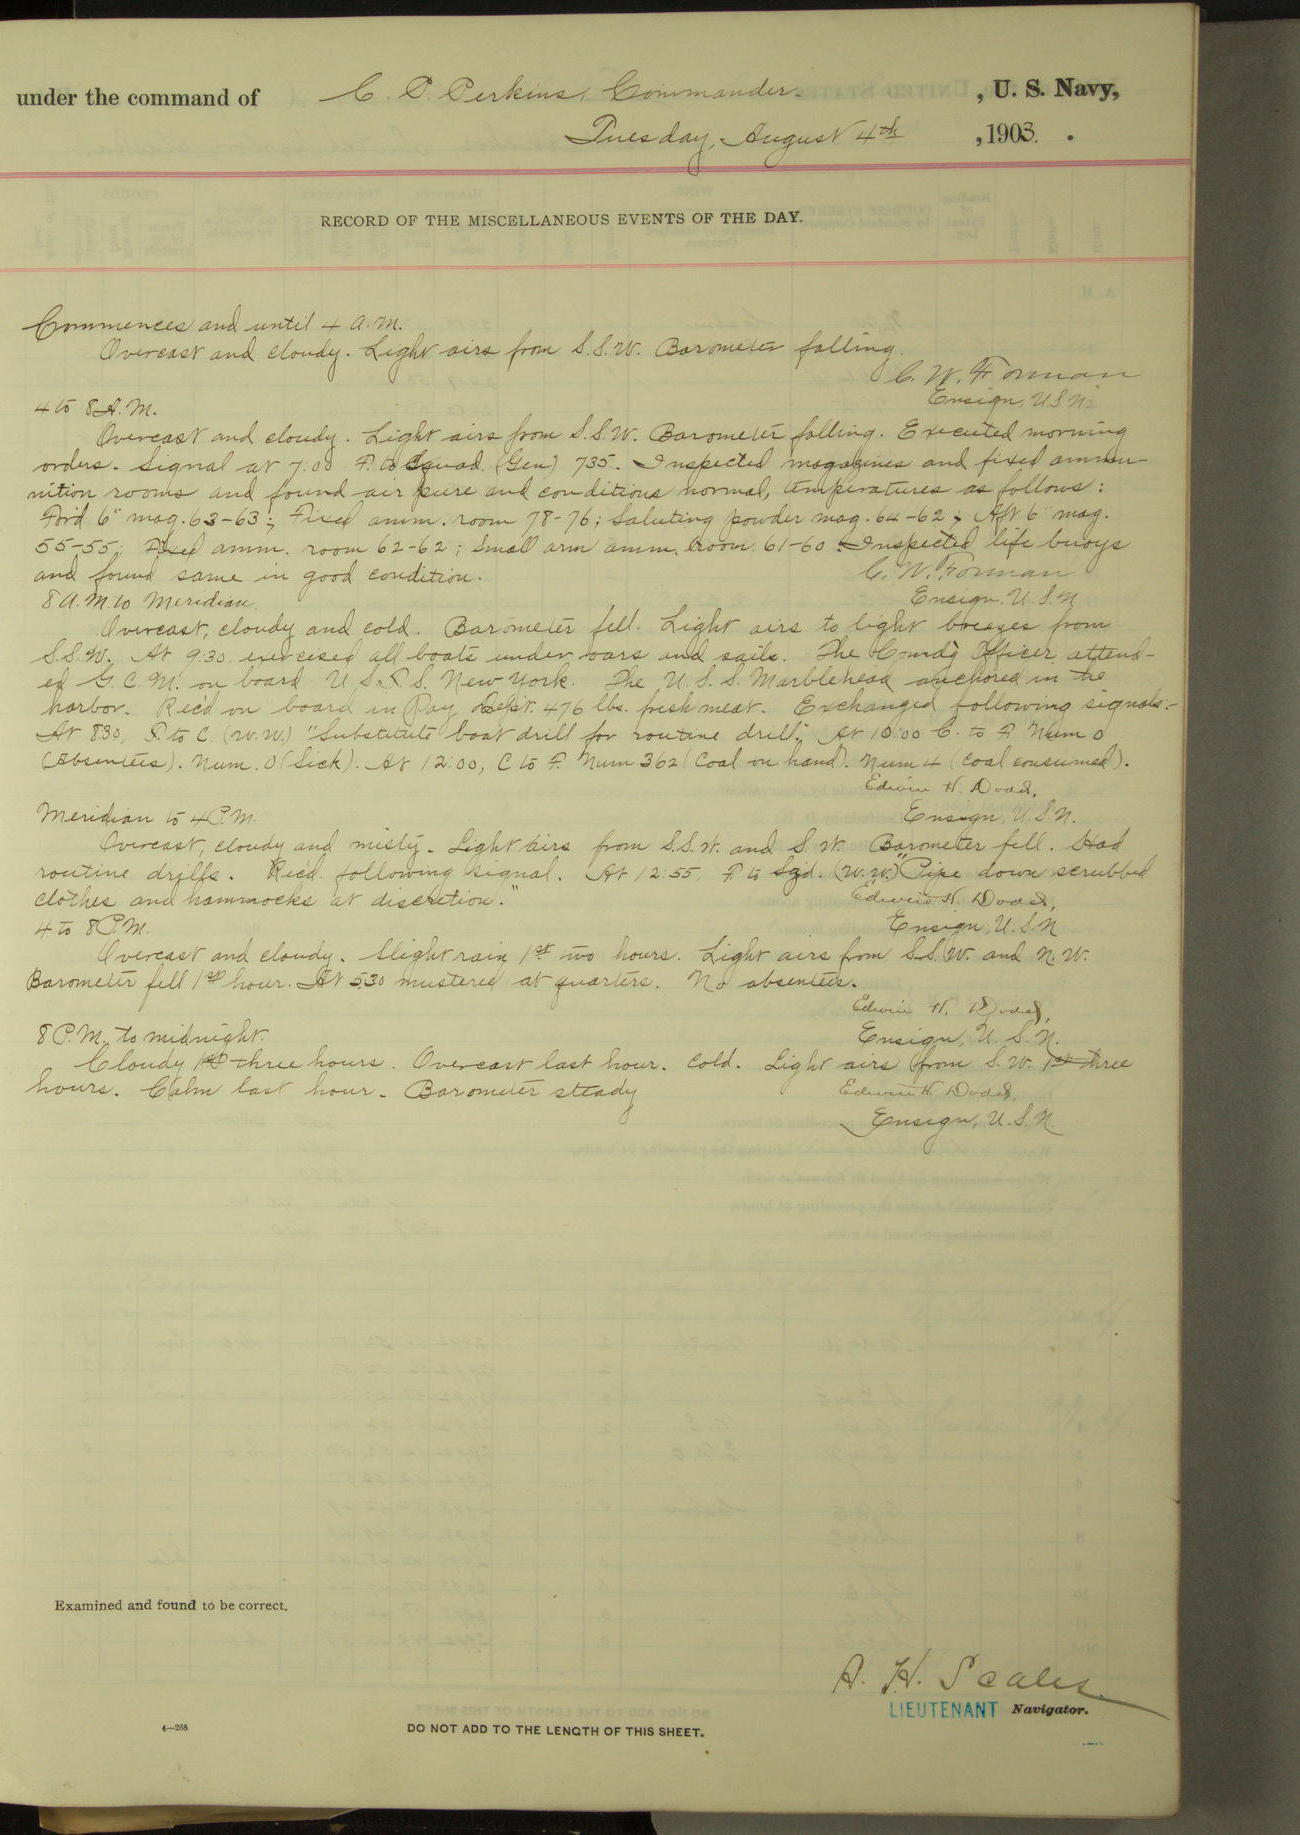 under the command of C. P. Perkins, Commander. , U. S. Navy,
Tuesday, August 4th , 1903.
RECORD OF THE MISCELLANEOUS EVENTS OF THE DAY.
Commences and until 4 A.M.
Overcast and cloudy. Light airs from S.S.W. Barometer falling.
C. W. Forman
Ensign, U.S.N.
4 to 8 A.M.
Overcast and cloudy. Light airs from S.S.W. Barometer falling. Executed morning
orders. Signal at 7:00 F. to Squad. (Gen) 735. Inspected magazines and fixed ammu-
nition rooms and found air pure and conditions normal, temperatures as follows:
For'd 6" mag. 63-63; Fixed amm. room 78-76; Saluting powder mag. 64-62; Aft 6" mag.
55-55; Fixed amm. room 62-62; Small arm amm. room 61-60. Inspected life buoys
and found same in good condition.
C. W. Forman
Ensign, U.S.N.
8 A.M. to Meridian.
Overcast, cloudy and cold. Barometer fell. Light airs to light breezes from
S.S.W. At 9:30 exercised all boats under oars and sails. The Comdg Officer attend-
ed G. C. M. on board U.S.F.S. New York. The U.S.S. Marblehead anchored in the
harbor. Rec'd on board in Pay Dept. 476 lbs. fresh meat. Exchanged following signals:-
At 8:30, F. to C. (W.W.) "Substitute boat drill for routine drill." At 10:00 C. to F. Num 0
(Absentees). Num. 0 (Sick). At 12:00, C to F. Num 362 (Coal on hand). Num 4 (Coal consumed).
Edwin H. Dodd,
Ensign, U.S.N.
Meridian to 4 P.M.
Overcast, cloudy and misty. Light airs from S.S.W. and S.W. Barometer fell. Had
routine drills. Rec'd following signal. At 12:55, F. to Sqd. (W.W.) "Pipe down scrubbed
clothes and hammocks at discretion."
Edwin H. Dodd,
Ensign, U.S.N
4 to 8 P.M.
Overcast and cloudy. Slight rain 1st two hours. Light airs from S.S.W. and N.W.
Barometer fell 1st hour. At 5:30 mustered at quarters. No absentees.
Edwin H. Dodd,
Ensign, U.S.N.
8 P.M. to midnight.
Cloudy 1st three hours. Overcast last hour. Cold. Light airs from S.W. 1st three
hours. Calm last hour. Barometer steady
Edwin H. Dodd,
Ensign, U.S.N.
Examined and found to be correct.
A. H. Scales.
LIEUTENANT Navigator.
4—268
DO NOT ADD TO THE LENGTH OF THIS SHEET.